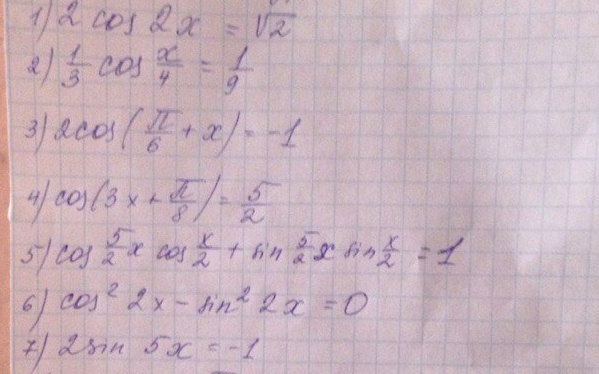 1) 2 cos 2x = √2
2) 1/3 cos x/4 = 1/9
3) 2cos(π/6 + x) = -1
4) cos(3x + π/8) = 5/2
5) cos 5/2 x cos x/2 + sin 5/2 x sin x/2 = 1
6) cos² 2x - sin² 2x = 0
7) 2sin 5x = -1